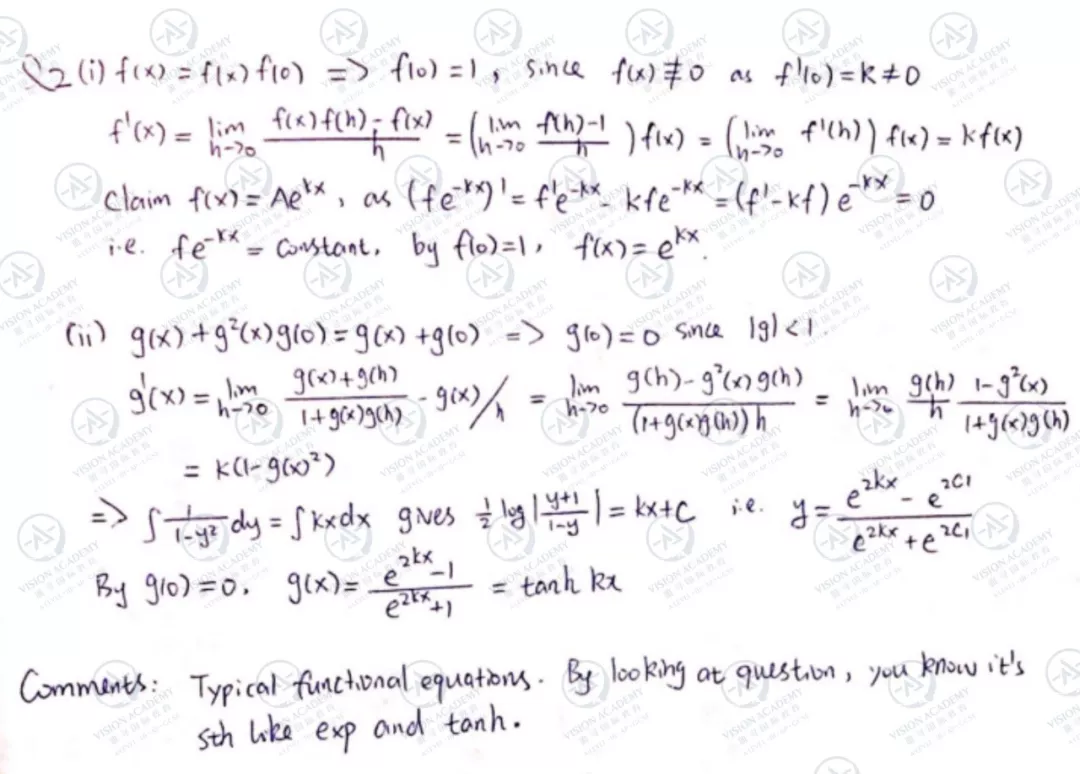 Q2 (i) f(x) = f(x) f(0) => f(0) = 1, since f(x) ≢ 0 as f'(0) = k ≠ 0
f'(x) = lim h->0 (f(x)f(h) - f(x))/h = (lim h->0 (f(h)-1)/h) f(x) = (lim h->0 f'(h)) f(x) = kf(x)
Claim f(x) = Ae^{kx}, as (fe^{-kx})' = f'e^{-kx} - kfe^{-kx} = (f'-kf) e^{-kx} = 0
i.e. fe^{-kx} = constant, by f(0)=1, f(x) = e^{kx}.
(ii) g(x) + g²(x)g(0) = g(x) + g(0) => g(0) = 0 since |g| < 1.
g'(x) = lim h->0 (g(x)+g(h))/(1+g(x)g(h)) - g(x) / h = lim h->0 (g(h) - g²(x)g(h))/((1+g(x)g(h)) h) = lim h->0 g(h)/h (1-g²(x))/(1+g(x)g(h))
= k(1-g(x)²)
=> ∫ 1/(1-y²) dy = ∫ kx dx gives 1/2 log |(y+1)/(1-y)| = kx+C i.e. y = (e^{2kx} - e^{2C1})/(e^{2kx} + e^{2C1})
By g(0) = 0, g(x) = (e^{2kx} - 1)/(e^{2kx} + 1) = tanh kx
Comments: Typical functional equations. By looking at question, you know it's
sth like exp and tanh.
VISION ACADEMY